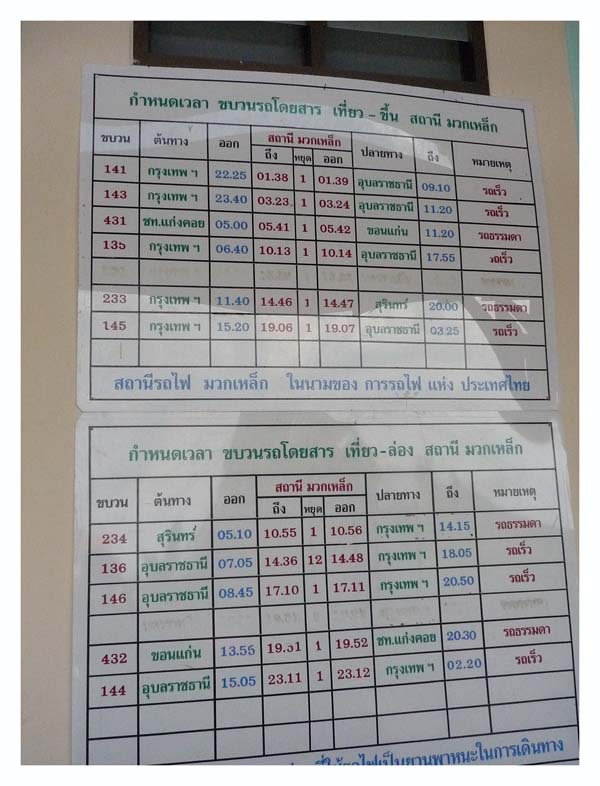 กำหนดเวลา ขบวนรถโดยสาร เที่ยว - ขึ้น สถานี มวกเหล็ก
ขบวน ต้นทาง ออก สถานี มวกเหล็ก ปลายทาง ถึง หมายเหตุ
ถึง หยุด ออก
141 กรุงเทพ ฯ 22.25 01.38 1 01.39 อุบลราชธานี 09.10 รถเร็ว
143 กรุงเทพ ฯ 23.40 03.23 1 03.24 อุบลราชธานี 11.20 รถเร็ว
431 ชท.แก่งคอย 05.00 05.41 1 05.42 ขอนแก่น 11.20 รถธรรมดา
135 กรุงเทพ ฯ 06.40 10.13 1 10.14 อุบลราชธานี 17.55 รถเร็ว
233 กรุงเทพ ฯ 11.40 14.46 1 14.47 สุรินทร์ 20.00 รถธรรมดา
145 กรุงเทพ ฯ 15.20 19.06 1 19.07 อุบลราชธานี 03.25 รถเร็ว
สถานีรถไฟ มวกเหล็ก ในนามของ การรถไฟ แห่ง ประเทศไทย
กำหนดเวลา ขบวนรถโดยสาร เที่ยว-ล่อง สถานี มวกเหล็ก
ขบวน ต้นทาง ออก สถานี มวกเหล็ก ปลายทาง ถึง หมายเหตุ
ถึง หยุด ออก
234 สุรินทร์ 05.10 10.55 1 10.56 กรุงเทพ ฯ 14.15 รถธรรมดา
136 อุบลราชธานี 07.05 14.36 12 14.48 กรุงเทพ ฯ 18.05 รถเร็ว
146 อุบลราชธานี 08.45 17.10 1 17.11 กรุงเทพ ฯ 20.50 รถเร็ว
432 ขอนแก่น 13.55 19.51 1 19.52 ชท.แก่งคอย 20.30 รถธรรมดา
144 อุบลราชธานี 15.05 23.11 1 23.12 กรุงเทพ ฯ 02.20 รถเร็ว
ที่ใช้รถไฟเป็นยานพาหนะในการเดินทาง